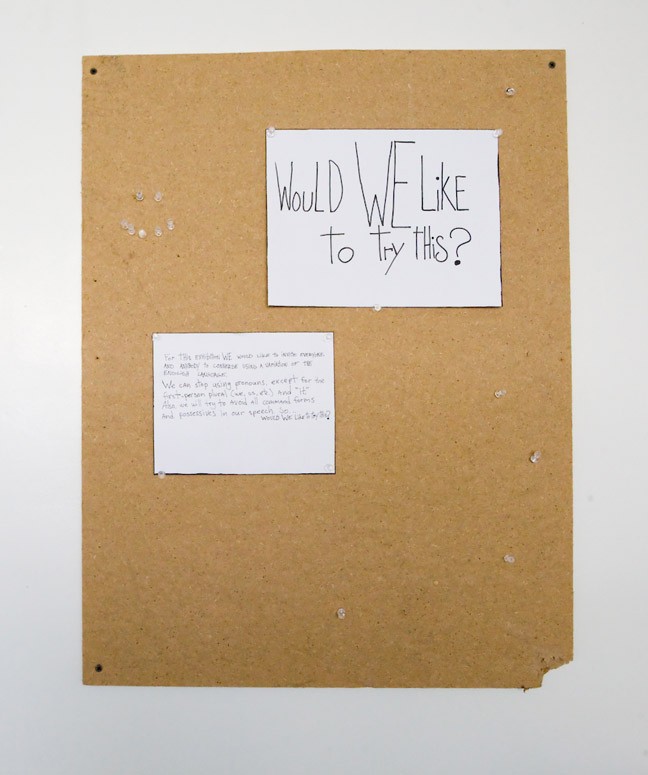 WOULD WE LIKE
to try tHiS?
For this exhibition WE would like to invite everyone
and anybody to converse using a variation of the
English language.
We can stop using pronouns, except for the
first-person plural (we, us, etc) And "it"
Also we will try to avoid all command forms
And possessives in our speech. So...
WOULD WE LIKE to try this?